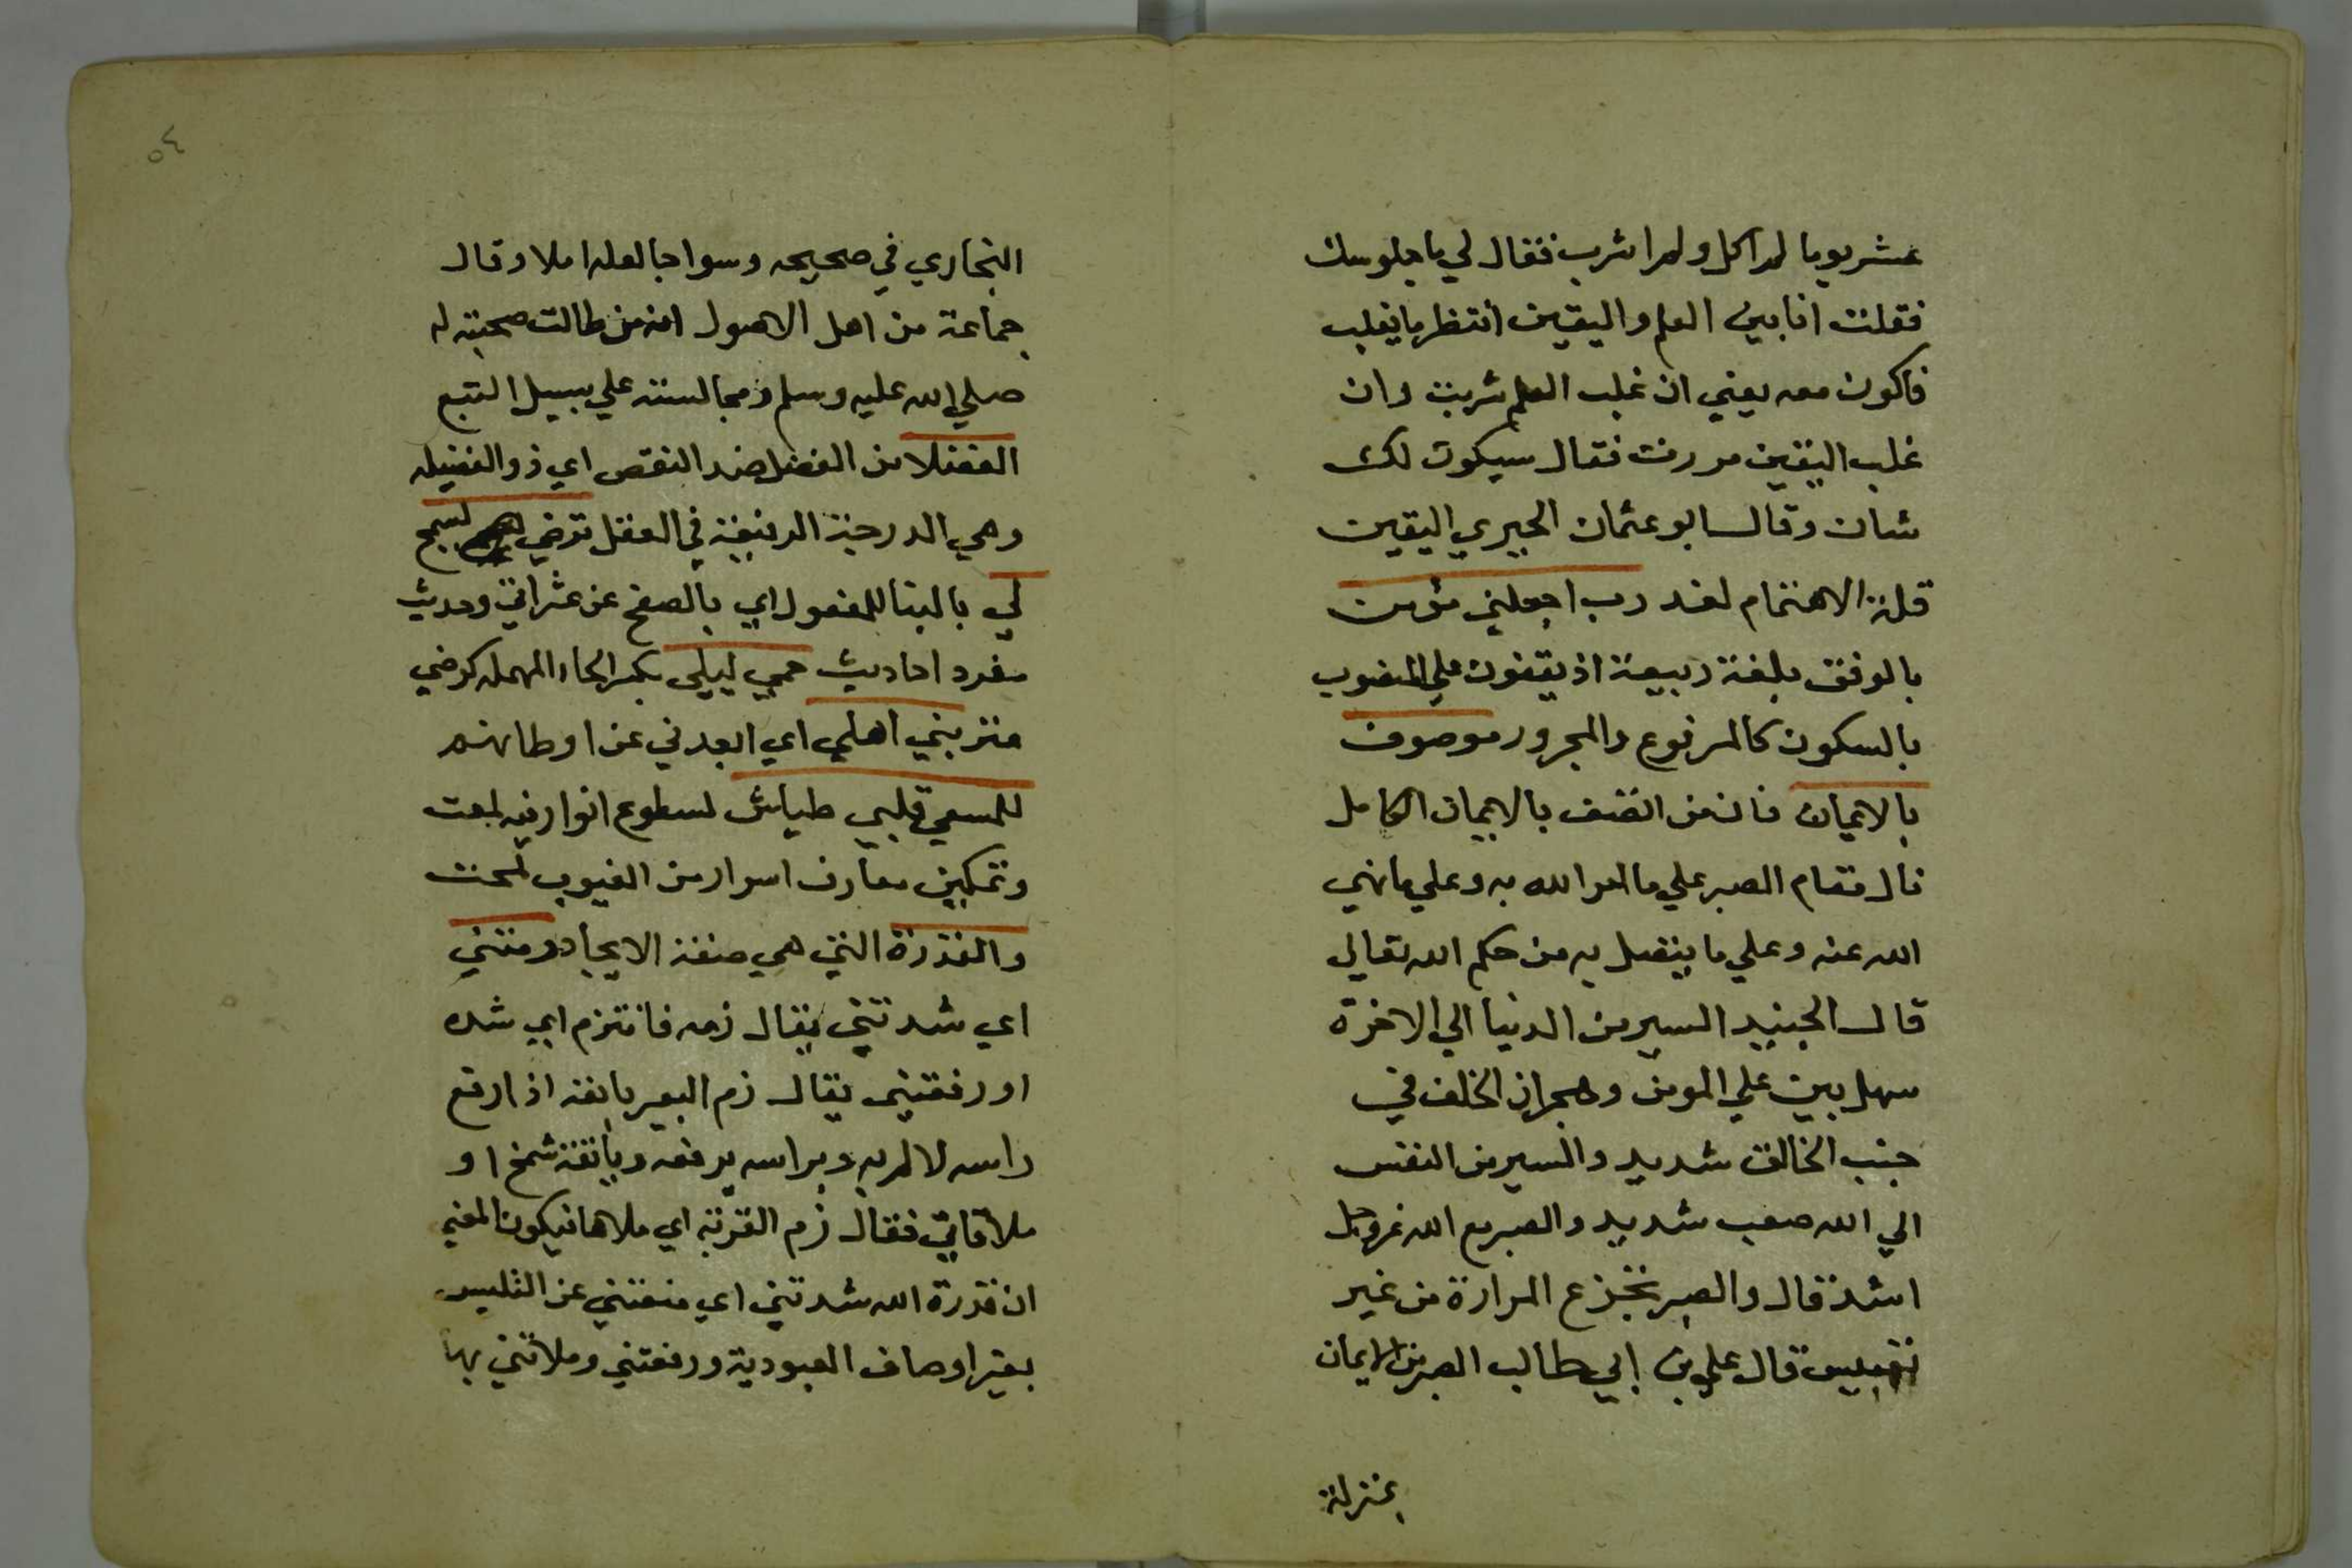 عشر يوما لم اكل ولم اشرب فقال لي ما جلوسك
فقلت انا بين العلم واليقين انتظر ما يغلب
فاكون معه يعني ان غلب العلم شربت وان
غلب اليقين مررت فقال سيكون لك
شان وقال ابو عثمان الحيري اليقين
قلة الاهتمام لغد رب اجعلني مؤمن
بالوقف بلغة ربيعة اذ يقفون علي المنصوب
بالسكون كالمرفوع والمجرور موصوف
بالايمان فان من اتصف بالايمان الكامل
نال مقام الصبر علي ما امر الله به وعلي ما نهي
الله عنه وعلي ما يتصل به من حكم الله تعالي
قال الجنيد السير من الدنيا الي الاخرة
سهل بين علي المومن وهجران الخلق في
جنب الخالق شديد والسير من النفس
الي الله صعب شديد والصبر مع الله عز وجل
اشد قال والصبر تجزع المرارة من غير
تعبيس قال علي بن ابي طالب الصبر من الايمان
بمنزلة
٥٤
البخاري في صحيحه وسوا جالسه ام لا وقال
جماعة من اهل الاصول انه من طالت صحبته له
صلي الله عليه وسلم ومجالسته علي سبيل التبع
الفضلا من الفضل ضد النقص اي ذو الفضيله
وهي الدرجة الرفيعة في الفضل ترضي يسمح
لي بالبنا للمفعول اي بالصفح عن عثراتي وحديث
مفرد احاديث حمي ليلي بكسر الحاء المهمله كرضي
غربني اهلي اي ابعدني عن اوطانهم
للمسعي قلبي طياش لسطوع انوار فيه لمعت
وتمكين معارف اسرار من الغيوب لمحت
والقدرة التي هي صفة الايجاد زمتني
اي شدتني يقال زمه فانزم اي شده
او رفعتني يقال زم البعير بانفه اذا رفع
راسه لالم به وبراسه يرفعه وبانفه شمخ او
ملاتني فقال زم القربة اي ملاها فيكون المعني
ان قدرة الله شدتني اي منعتني عن التلبس
بغير اوصاف العبودية ورفعتني وملاتني بها